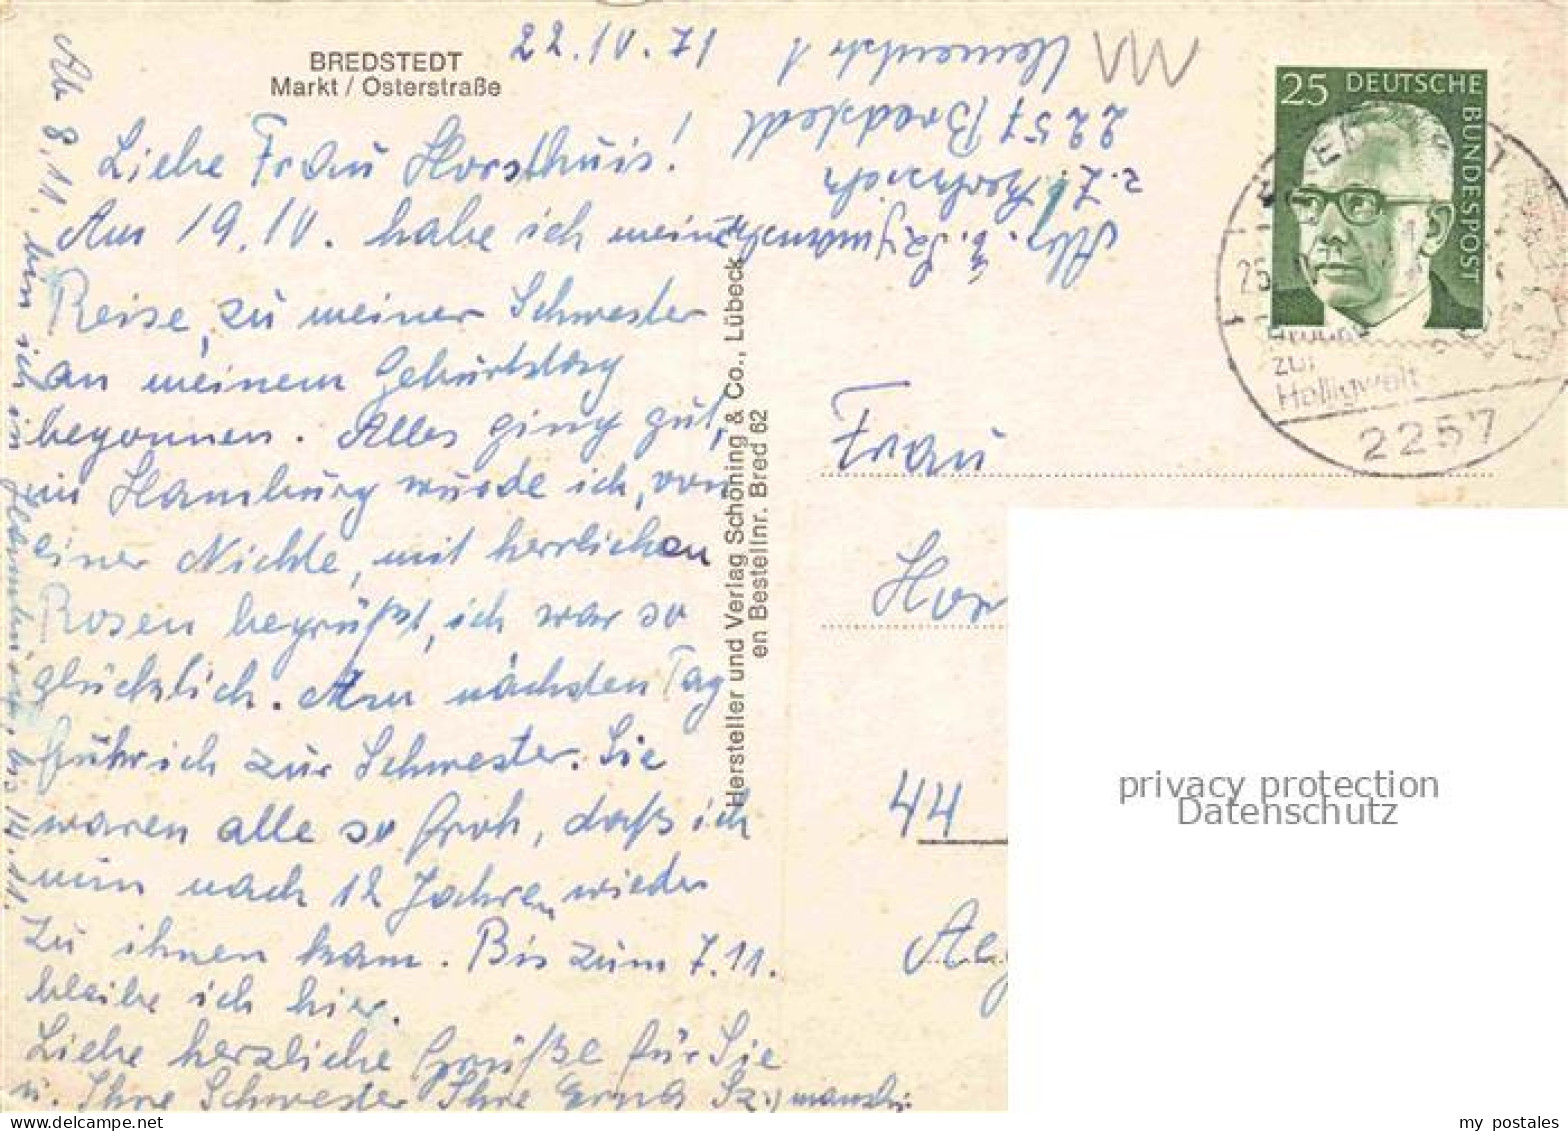 BREDSTEDT
Markt / Osterstraße
22.IV.71
Liebe Frau Horsthuis!
Am 19.IV. habe ich meine
Reise, zu meiner Schwester
an meinem Geburtstag
begonnen. Alles ging gut,
in Hamburg wurde ich, von
einer Nichte, mit herrlichen
Rosen begrüßt, ich war so
glücklich. Am nächsten Tag
fuhr ich zur Schwester. Sie
waren alle so froh, daß ich
nun nach 12 Jahren wieder
zu ihnen kam. Bis zum 7.11.
bleibe ich hier.
Liebe herzliche Grüße für Sie
u. Ihre Schwester Ihre Erna Szymanski
Ab 8.11. bin ich in Hamburg, bis 14.11.
Abs. E. Szymanski
z.Z.
2257 Bredstedt
1
Hersteller und Verlag Schöning & Co., Lübeck
en Bestellnr. Bred 62
25 DEUTSCHE
BUNDESPOST
zur
Halligwelt
2257
Frau
Hor
44
privacy protection
Datenschutz
my postales